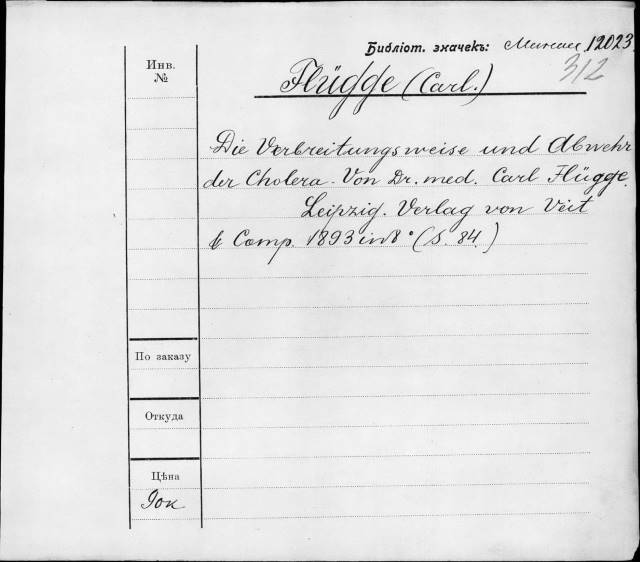 Библіот. значекъ: 12023
312
Инв.
№
Flügge (Carl.)
Die Verbreitungsweise und Abwehr
der Cholera. Von Dr. med. Carl Flügge.
Leipzig. Verlag von Veit
& Comp. 1893 in 8° (S. 84.)
По заказу
Откуда
Цѣна
90к